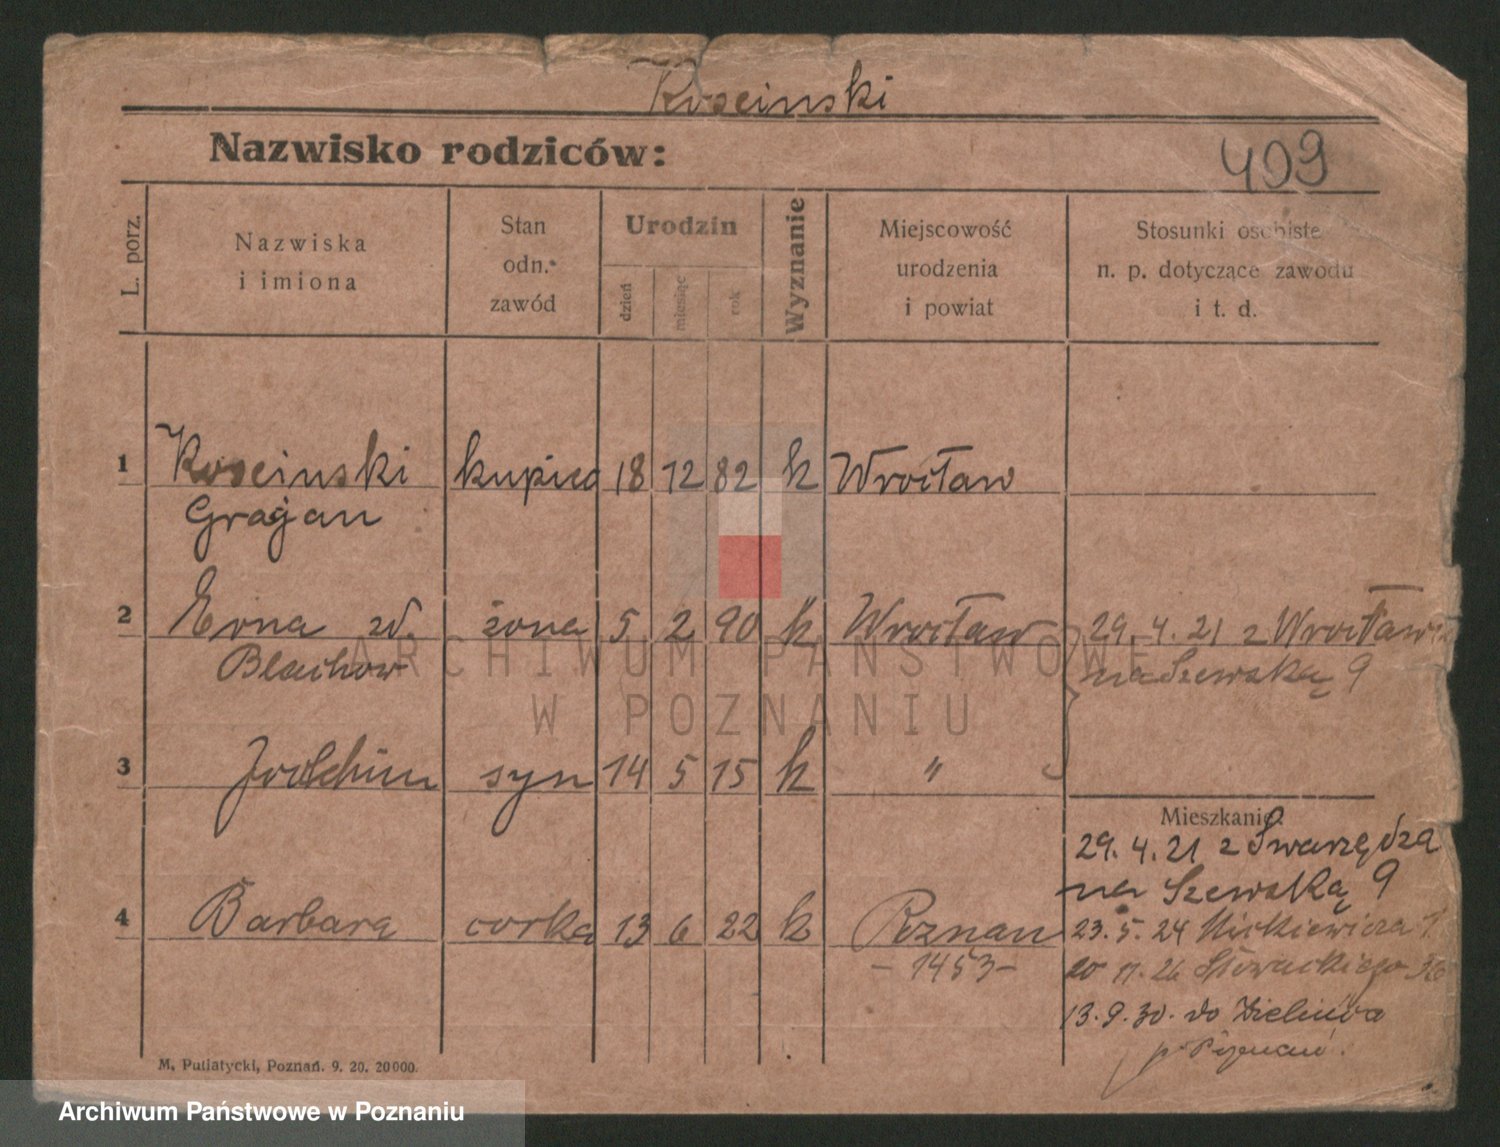 Koscinski
Nazwisko rodziców:
409
L. porz.
Nazwiska
i imiona
Stan
odn.
zawód
Urodzin
dzień
miesiąc
rok
Wyznanie
Miejscowość
urodzenia
i powiat
Stosunki osobiste
n. p. dotyczące zawodu
i t. d.
1 Koscinski kupiec 18 12 82 k Wrocław
2 Erna zd. żona 5 2 90 k Wrocław 29. 4. 21 z Wrocławia
Blachow na Szewską 9
ARCHIWUM PAŃSTWOWE
W POZNANIU
3 Joachim syn 14 5 15 k "
Mieszkanie:
29. 4. 21 z Swarzędza
na Szewską 9
4 Barbara corka 13 6 22 k Poznan 23. 5. 24 Mickiewicza 1
- 1453 - 20 11. 26 Słowackiego 36
13. 9. 30. do
M. Putiatycki, Poznań. 9. 20. 20000.
Archiwum Państwowe w Poznaniu